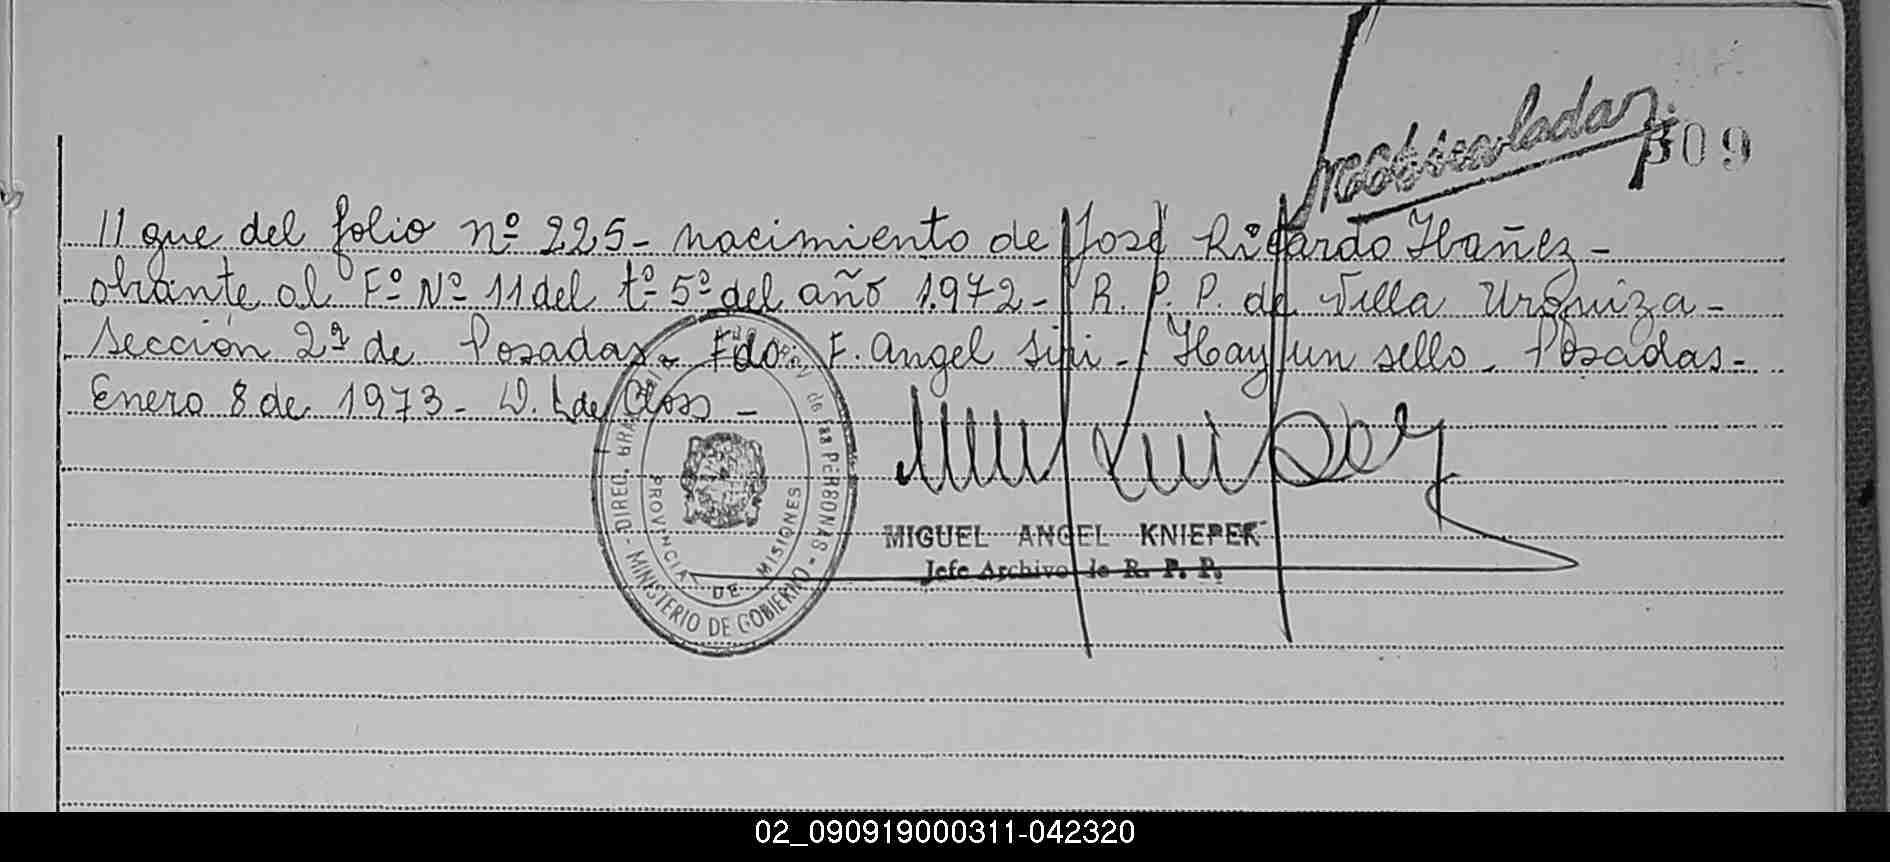 309
// que del folio nº 225 - nacimiento de José Ricardo Ibañez -
obrante al Fº Nº 11 del tº 5º del año 1.972 - R. P. P. de Villa Urquiza -
Sección 2ª de Posadas - Fdo. F. Angel Siri - Hay un sello - Posadas -
Enero 8 de 1973 - W. L de Closs -
DIREC. GRAL. DEL REG. PROV. de las PERSONAS - MINISTERIO DE GOBIERNO -
PROVINCIA DE MISIONES
MIGUEL ANGEL KNIEPER
Jefe Archivo de R. P. P.
02_090919000311-042320